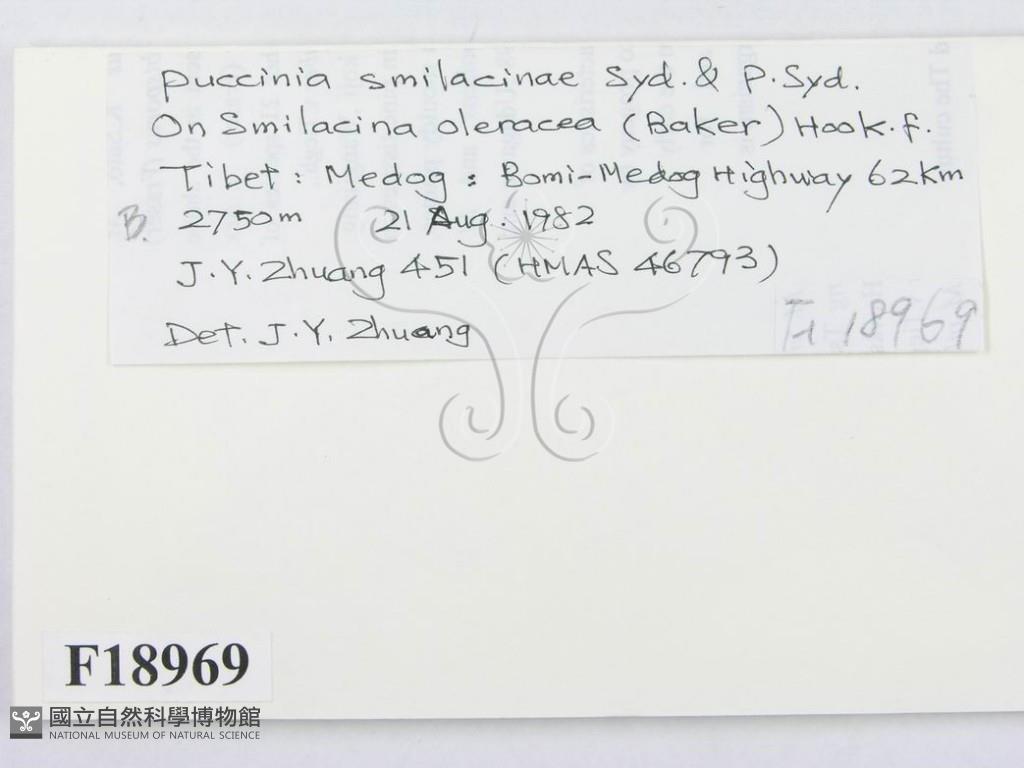 Puccinia smilacinae Syd. & P. Syd.
On Smilacina oleracea (Baker) Hook. f.
Tibet : Medog : Bomi-Medog Highway 62Km
B. 2750m 21 Aug. 1982
J. Y. Zhuang 451 (HMAS 46793)
Det. J. Y. Zhuang
F18969
F18969
國立自然科學博物館
NATIONAL MUSEUM OF NATURAL SCIENCE